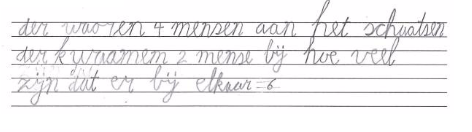 der waoren 4 mensen aan het schaatsen
der kwamem 2 mense bij hoe veel
zijn dat er bij elkaar = 6